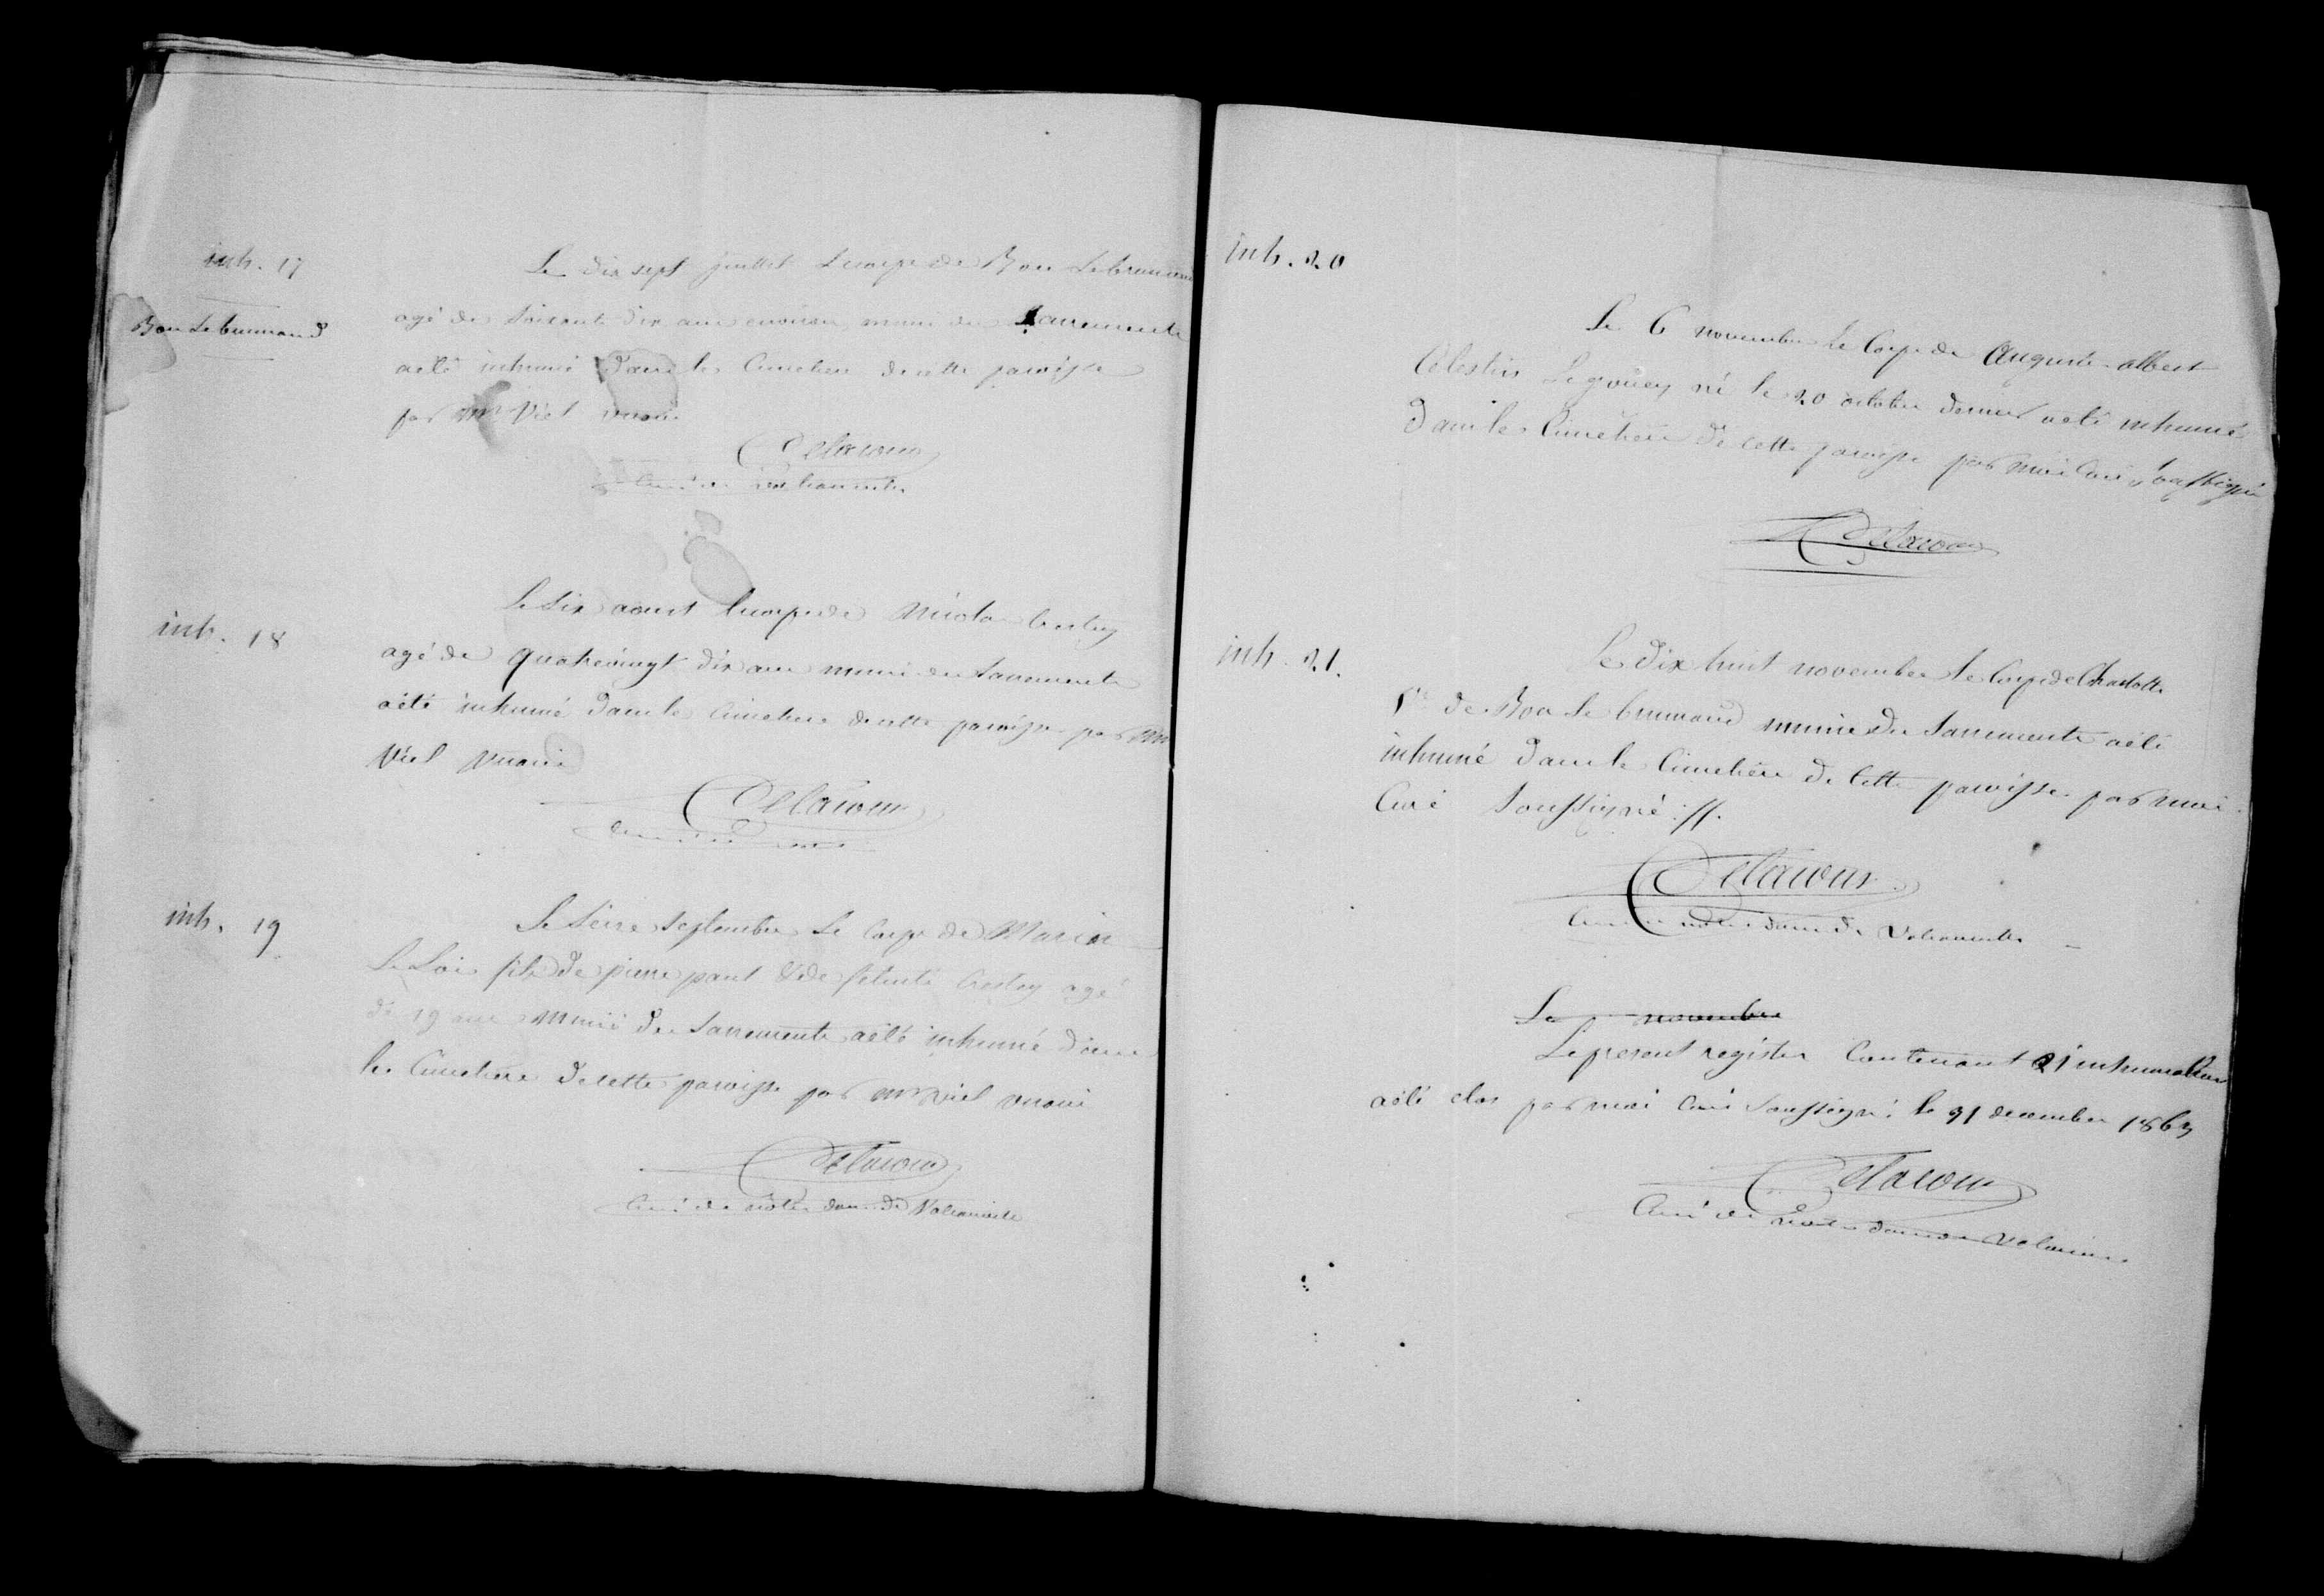 inh. 17
Bon Lebrumand
Le dix sept juillet le corps de Bon Lebrumand
agé de soixante dix ans environ muni des sacrements
aété inhumé dans le cimetiere de cette paroisse
par Mr Viel vicaire
Delacour
curé de
Le six aoust le corps de Nicolas Crestey
inh. 18
agé de quatrevingt dix ans muni des sacrements
aété inhumé dans le cimetiere de cette paroisse par Mr
Viel vicaire
Delacour
inh. 19
Le seize septembre le corps de Marin
Le Loi fils de pierre paul & de félicité Crestey agé
de 19 ans muni des sacrements aété inhumé dans
le cimetiere de cette paroisse par mr viel vicaire
Delacour
Curé de notre dame de
inh. 20
Le 6 novembre le corps de Auguste albert
Célestin Legouey né le 20 octobre dernier aété inhumé
dans le cimetiere de cette paroisse par moi curé soussigné
Delacour
inh. 21.
Le dix huit novembre le corps de Charlotte
de Bon Le brumand munie des sacrements aété
inhumé dans le cimetière de cette paroisse par moi
Curé soussigné .//.
Delacour
Curé de notre dame de
Le novembre
Le present registre contenant 21 inhumations
aété clos par moi curé soussigné le 31 decembre 1863
Delacour
Curé de notre dame de